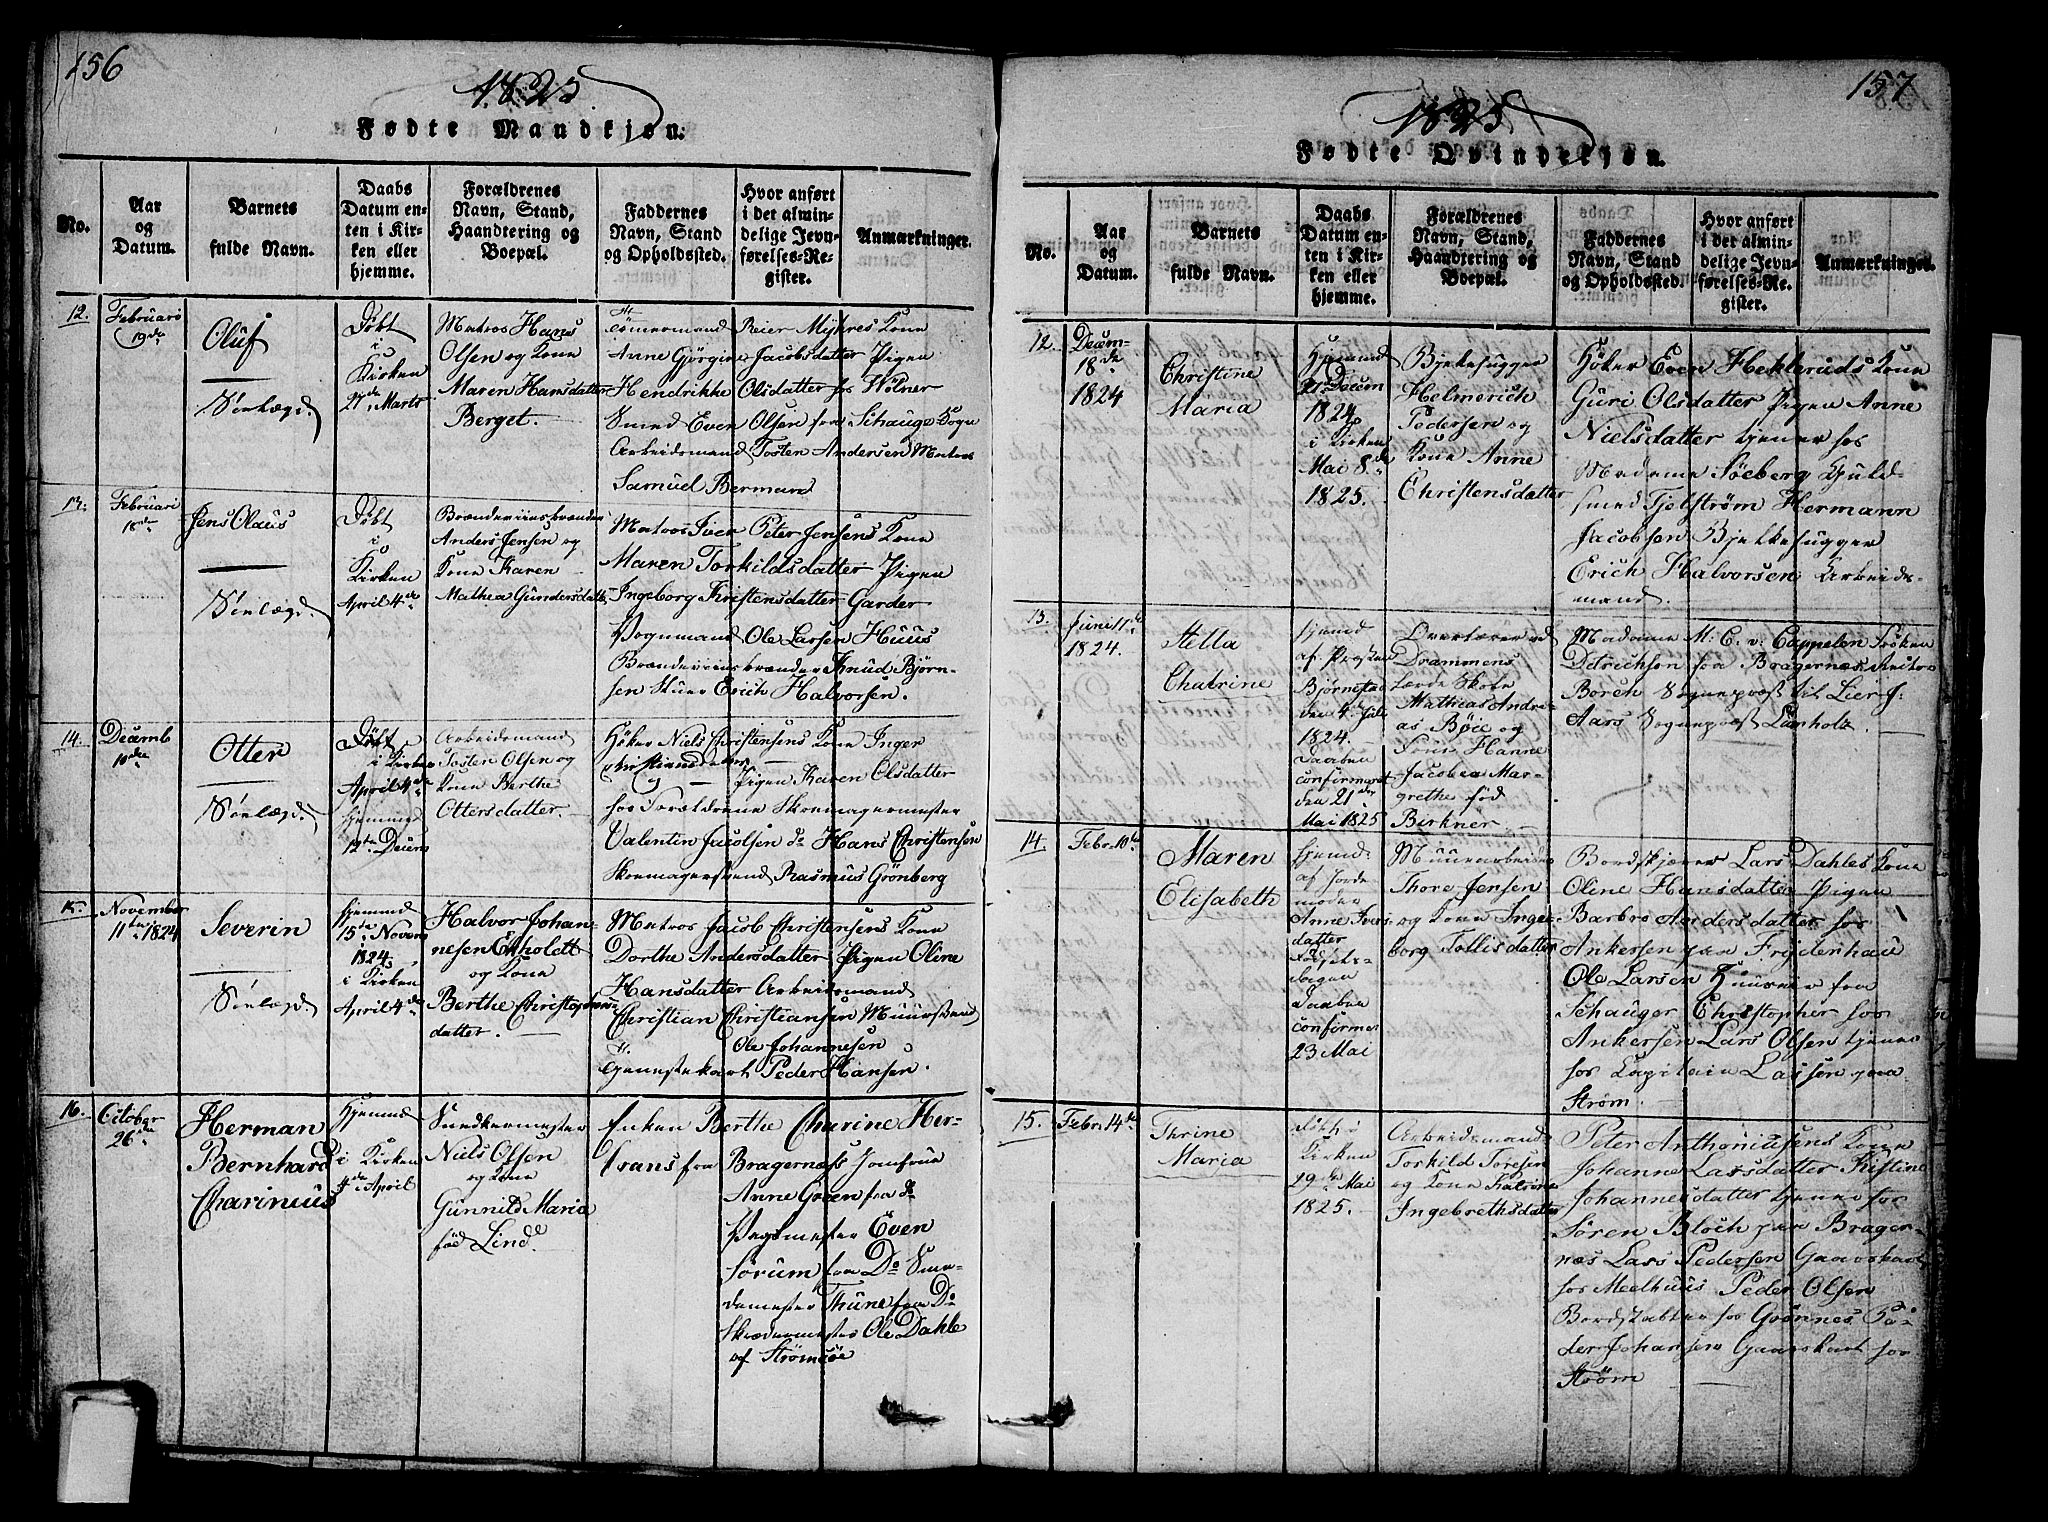 156
1825
Fødte Mandkjøn.
No.
Aar
og
Datum.
Barnets
fulde Navn.
Daabs
Datum en-
ten i Kir-
ken eller
hjemme.
Forældrenes
Navn, Stand,
Haandtering og
Boepæl.
Faddernes
Navn, Stand
og Opholdssted.
Hvor anført
i det almin-
delige Jevn-
førelses-Re-
gister.
Anmærkninger.
12.
Februari
19de
Oluf
Døbt
i
Kirken
27de Marts
Matros Hans
Olsen og Kone
Maren Hansdatter
Berget.
Tømmermand Reier Mykres Kone
Anne Gjørgine Jacobsdatter Pigen
Hendrikke Olsdatter hos Wølner
Smed Even Olsen fra Schauge Sogn
Arbeidsmand Tosten Andersen Matros
Samuel Berman
13.
Februari
18de
Jens Olaus
Døbt
i
Kirken
April 4de
Brændeviinsbrænder
Anders Jensen og
Kone Karen
Mathea Gundersdatt
Matros Iver Peter Jensens Kone
Maren Torkildsdatter Pigen
Ingeborg Kristensdatter Garder
Vognmand Ole Larsen Huus
Brændeviinsbrænder Knud Bjørn-
sen Erich Halvorsen.
14.
Decemb
10de
Otter
Døbt
i Kirken
April 4de
hjemme
12te Decem
Arbeidsmand
Tosten Olsen og
Kone Berthe
Ottersdatter.
Høker Niels Christensens Kone Inger
Pigen Karen Olsdatter
hos Forældrene Skomagermester
Valentin Jacobsen do Hans Christensen
Skomagersvend Rasmus Grönberg
15.
November
11te 1824
Severin
hjemme
15de Novem
1824
i Kirken
April 4de
Halvor Johan-
nesen Ekholdt
og Kone
Berthe Christophers
datter.
Matros Jacob Christensens Kone
Dorthe Andersdatter Pigen Oline
Hansdatter Arbeidsmand
Christian Christiansen Muursvend
Ole Johannesen
Tjenestekarl Peder Hansen.
16.
October
26de
Herman
Bernhard
Charinius
hjemme
i Kirken
4de April
Niels Olsen
og Kone
Gunnild Maria
fød Lind
Enken Berthe Charine Her-
frans fra Bragernæss Jomfrue
Anne Green fra do
Even
Sørum fra Do
Thune fra Do
Skrædermester Ole Dahle
af Strømsöe
157
1825
Fødte Qvindekjøn.
No.
Aar
og
Datum.
Barnets
fulde Navn.
Daabs
Datum en-
ten i Kir-
ken eller
hjemme.
Forældrenes
Navn, Stand,
Haandtering og
Boepæl.
Faddernes
Navn, Stand
og Opholdssted.
Hvor anført
i det almin-
delige Jevn-
førelses-Re-
gister.
Anmærkninger.
12.
Decem-
18de
1824
Christine
Maria
hjemme
21de Decem
1824
i Kirken
Mai 8de
1825.
Bjelkehugger
Helmerich
Pedersen og
Kone Anne
Christensdatter
Høker Even Hekleruds Kone
Guri Olsdatter Pigen Anne
Nielsdatter tjener hos
Madame Söeberg Guld-
smed Fjelstrøm Hermann
Jacobsen Bjelkehugger
Erich Halvorsen Arbeids-
mand.
13.
Juni 11te
1824.
Stella
Chatrine
hjemme
af Præsten
Bjørnstad
den 4de Juli
1824.
Daaben
confirmeret
den 21de
Mai 1825
Overlærer ved
Drammens
Lærde Skole
Mathias Andre-
as Böie og
Frue Hanne
Jacobea Mar-
grethe fød
Birkner.
Madame M: C. v: Cappelen Frøken
Detrichson fra Bragernæs
Borch Sogneprest til Lier J:
Aars Sogneprest Lumholz.
14.
Febr. 10de
Maren
Elisabeth
hjemme
af Jorde
moder
Anne Ivers
datter
Daaben
confirmer
23 Mai
Muurarbeider
Thore Jensen
og Kone Inge-
borg Tollisdatter
Bordskjærer Lars Dahles Kone
Oline Hansdatter Pigen
Barbro Andersdatter hos
Ankersen paa Frydenhau
Ole Larsen Huusere fra
Schauger Christopher hos
Ankersen Lars Olsen tjener
hos Capitain Lassen paa
Strøm.
15.
Febr. 14de
Thrine
Maria
Kirken
29de Mai
1825.
Arbeidsmand
Torkild Toresen
og Kone Katrine
Ingebrethsdatter
Peter Anthoniusens Kone
Johanne Larsdatter Kistine
Johannesdatter tjener hos
Søren Bloch paa Brager-
næs Lars Pedersen Gaardskarl
hos Meelhuus Peder Olsen
Bordstabler hos Grönnes Pe-
der Johansen Gaarskarl hos
Strøm